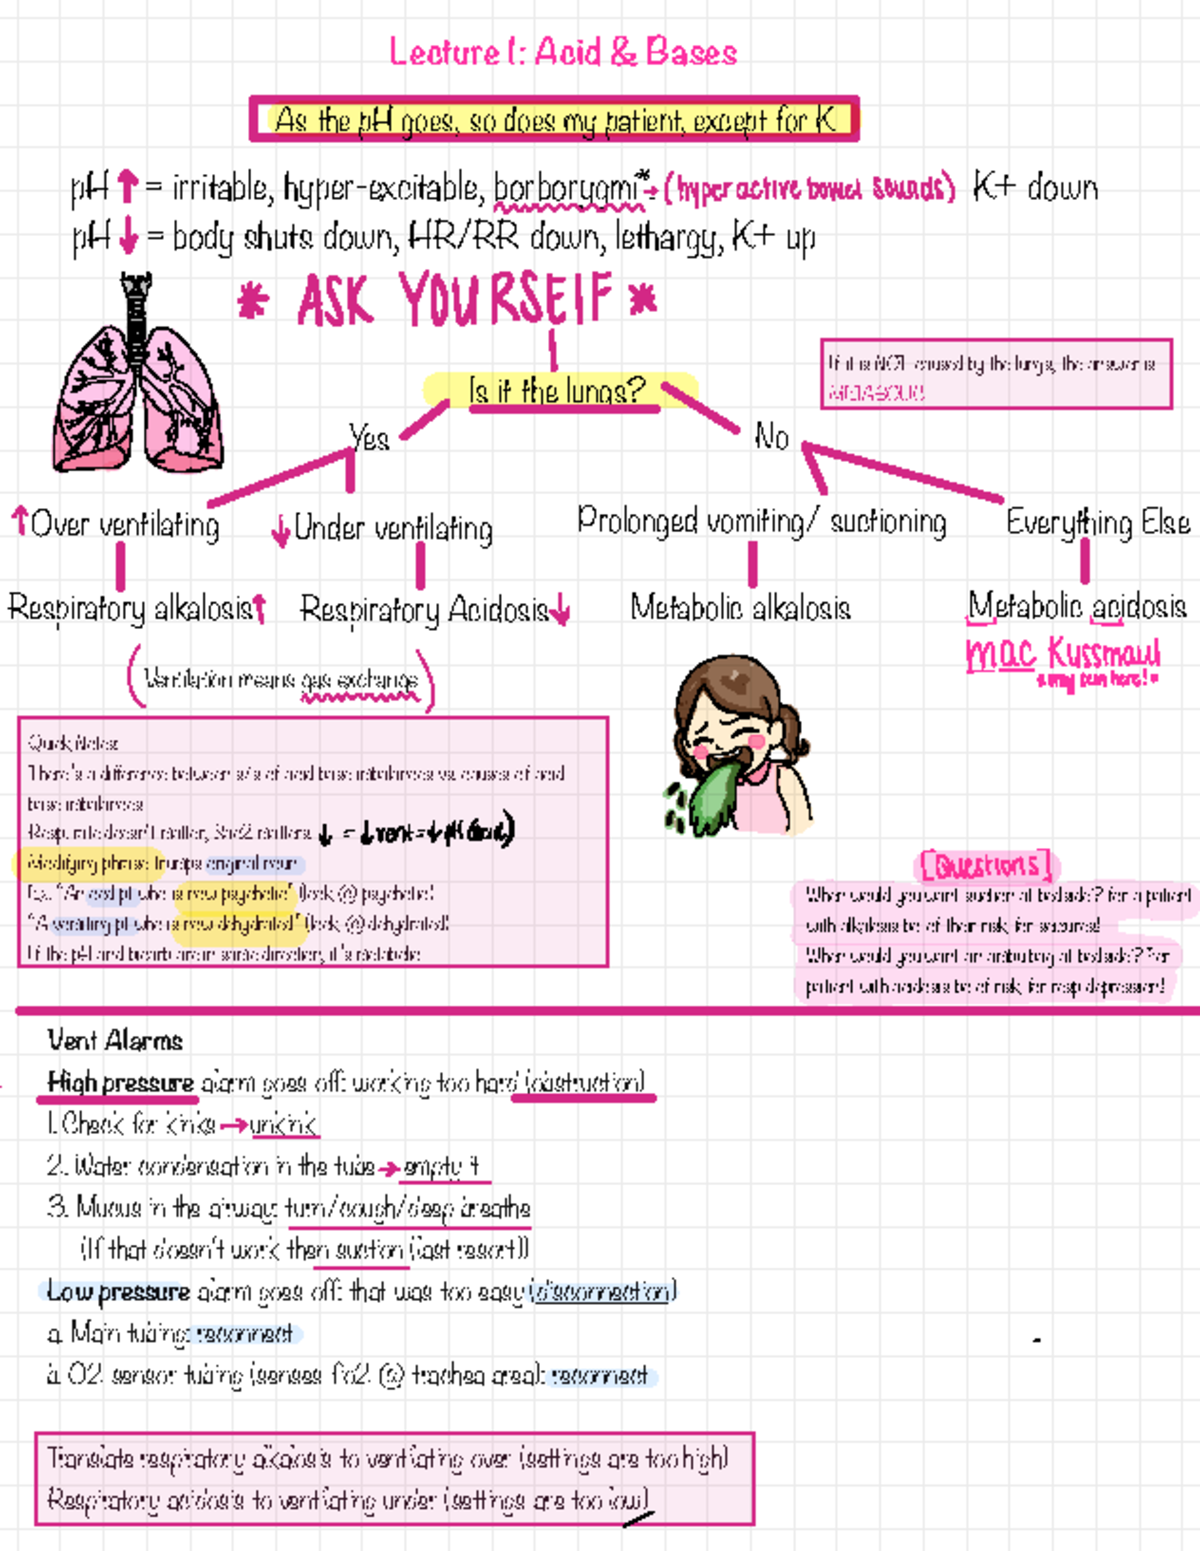 Lecture 1: Acid & Bases
As the pH goes, so does my patient, except for K
pH ↑ = irritable, hyper-excitable, borborygmi* → (hyperactive bowel sounds) K+ down
pH ↓ = body shuts down, HR/RR down, lethargy, K+ up
* ASK YOURSElF *
Is it the lungs?
If it is NOT caused by the lungs, the answer is
METABOLIC!
Yes
No
↑ Over ventilating
↓ Under ventilating
Prolonged vomiting/ suctioning
Everything Else
Respiratory alkalosis ↑
Respiratory Acidosis ↓
Metabolic alkalosis
Metabolic acidosis
(Ventilation means gas exchange)
mac Kussmaul
Quick Notes:
There's a difference between s/s of acid base imbalances vs. causes of acid
base imbalances
Resp. rate doesn't matter, SaO2 matters ↓ = ↓ vent = ↓ pH
Modifying phrase trumps original noun
Ex. "An ood pt who is now psychotic" (look @ psychotic)
"A vomiting pt who is now dehydrated" (look @ dehydrated)
If the pH and bicarb are in same direction, it's metabolic
[Questions]
When would you want suction at bedside? For a patient
with alkalosis bc of their risk for seizures!
When would you want an ambu bag at bedside? For
patient with acidosis bc of risk for resp depression!
Vent Alarms
High pressure alarm goes off: working too hard (obstruction)
1. Check for kinks → unkink
2. Water condensation in the tube → empty it
3. Mucus in the airway: turn/cough/deep breathe
(If that doesn't work then suction (last resort))
Low pressure alarm goes off: that was too easy (disconnection)
a. Main tubing: reconnect
b. O2 sensor tubing (senses FiO2 @ trachea area): reconnect
Translate respiratory alkalosis to ventilating over (settings are too high)
Respiratory acidosis to ventilating under (settings are too low)